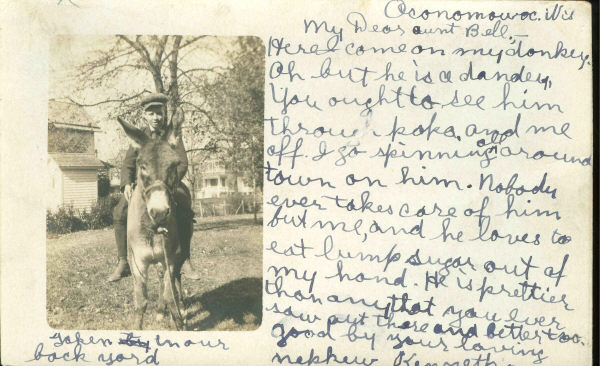 Oconomowoc. Wis
My Dear aunt Bell,-
Here I come on my donkey.
Oh but he is a dandey,
You ought to see him
through poko, and me
off. I go spinning all around
town on him. Nobody
ever takes care of him
but me, and he loves to
eat lump sugar out of
my hand. He is prettier
than any that you ever
saw out there and better too.
good by your loving
nephew Kenneth.
Taken by in our
back yard